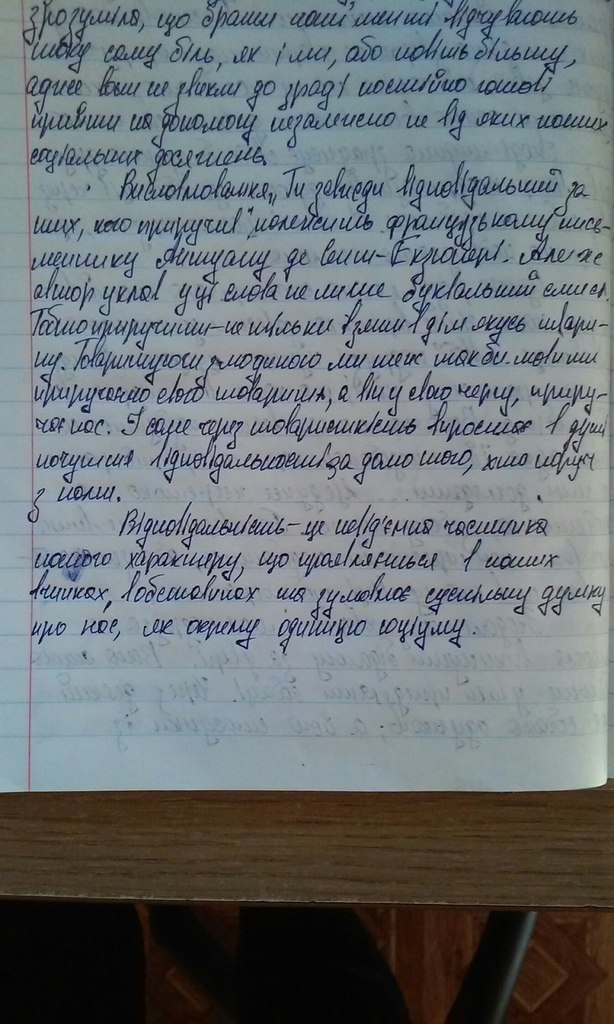 зрозуміла, що брати наші менші відчувають
таку саму біль, як і ми, або навіть більшу,
адже вони не звикли до зради і постійно готові
прийти на допомогу незалежно не від яких наших
соціальних досягнень.
Висловлювання „Ти завжди відповідальний за
тих, кого приручив" належить французькому пись-
меннику Антуану де Сент-Екзюпері. Але ж
автор уклав у ці слова не лише буквальний смисл.
Тобто приручити-не тільки взяти в дім якусь твари-
ну. Товаришуючи з людиною ми теж так би мовити
приручаємо свого товариша, а він у свою чергу, приру-
чає нас. І саме через товариськість виростає в душі
почуття відповідальності за долю того, хто поруч
з нами.
Відповідальність-це невід'ємна частинка
нашого характеру, що проявляється в наших
вчинках, в обставинах та зумовлює суспільну думку
про нас, як окрему одиницю соціуму.